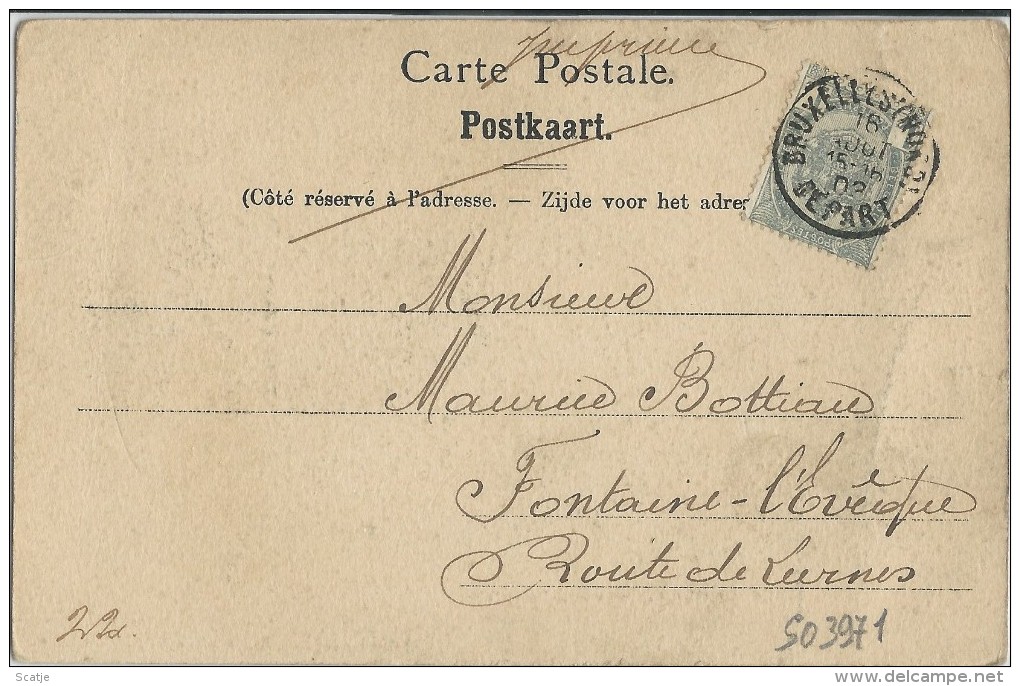 imprimé
Carte Postale.
Postkaart.
(Côté réservé à l'adresse. — Zijde voor het adres
BRUXELLES (NORD)
16
AOUT
DEPART
POSTES
Monsieur
Maurice Bottiau
Fontaine-l'Evêque
Route de Leernes
503971
Scatje
delcampe.net